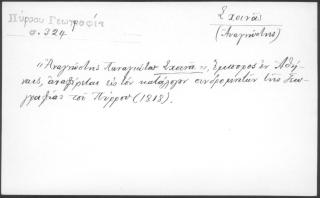 Πύρρου Γεωγραφία
σ. 324
Σχοινᾶς
(Ἀναγνώστης)
"Ἀναγνώστης Παναγιώτου Σχοινᾶ", ἔμπορος ἐν Ἀθή-
ναις, ἀναφέρεται εἰς τὸν κατάλογον συνδρομητῶν τῆς Γεω-
γραφίας τοῦ Πύρρου (1818).